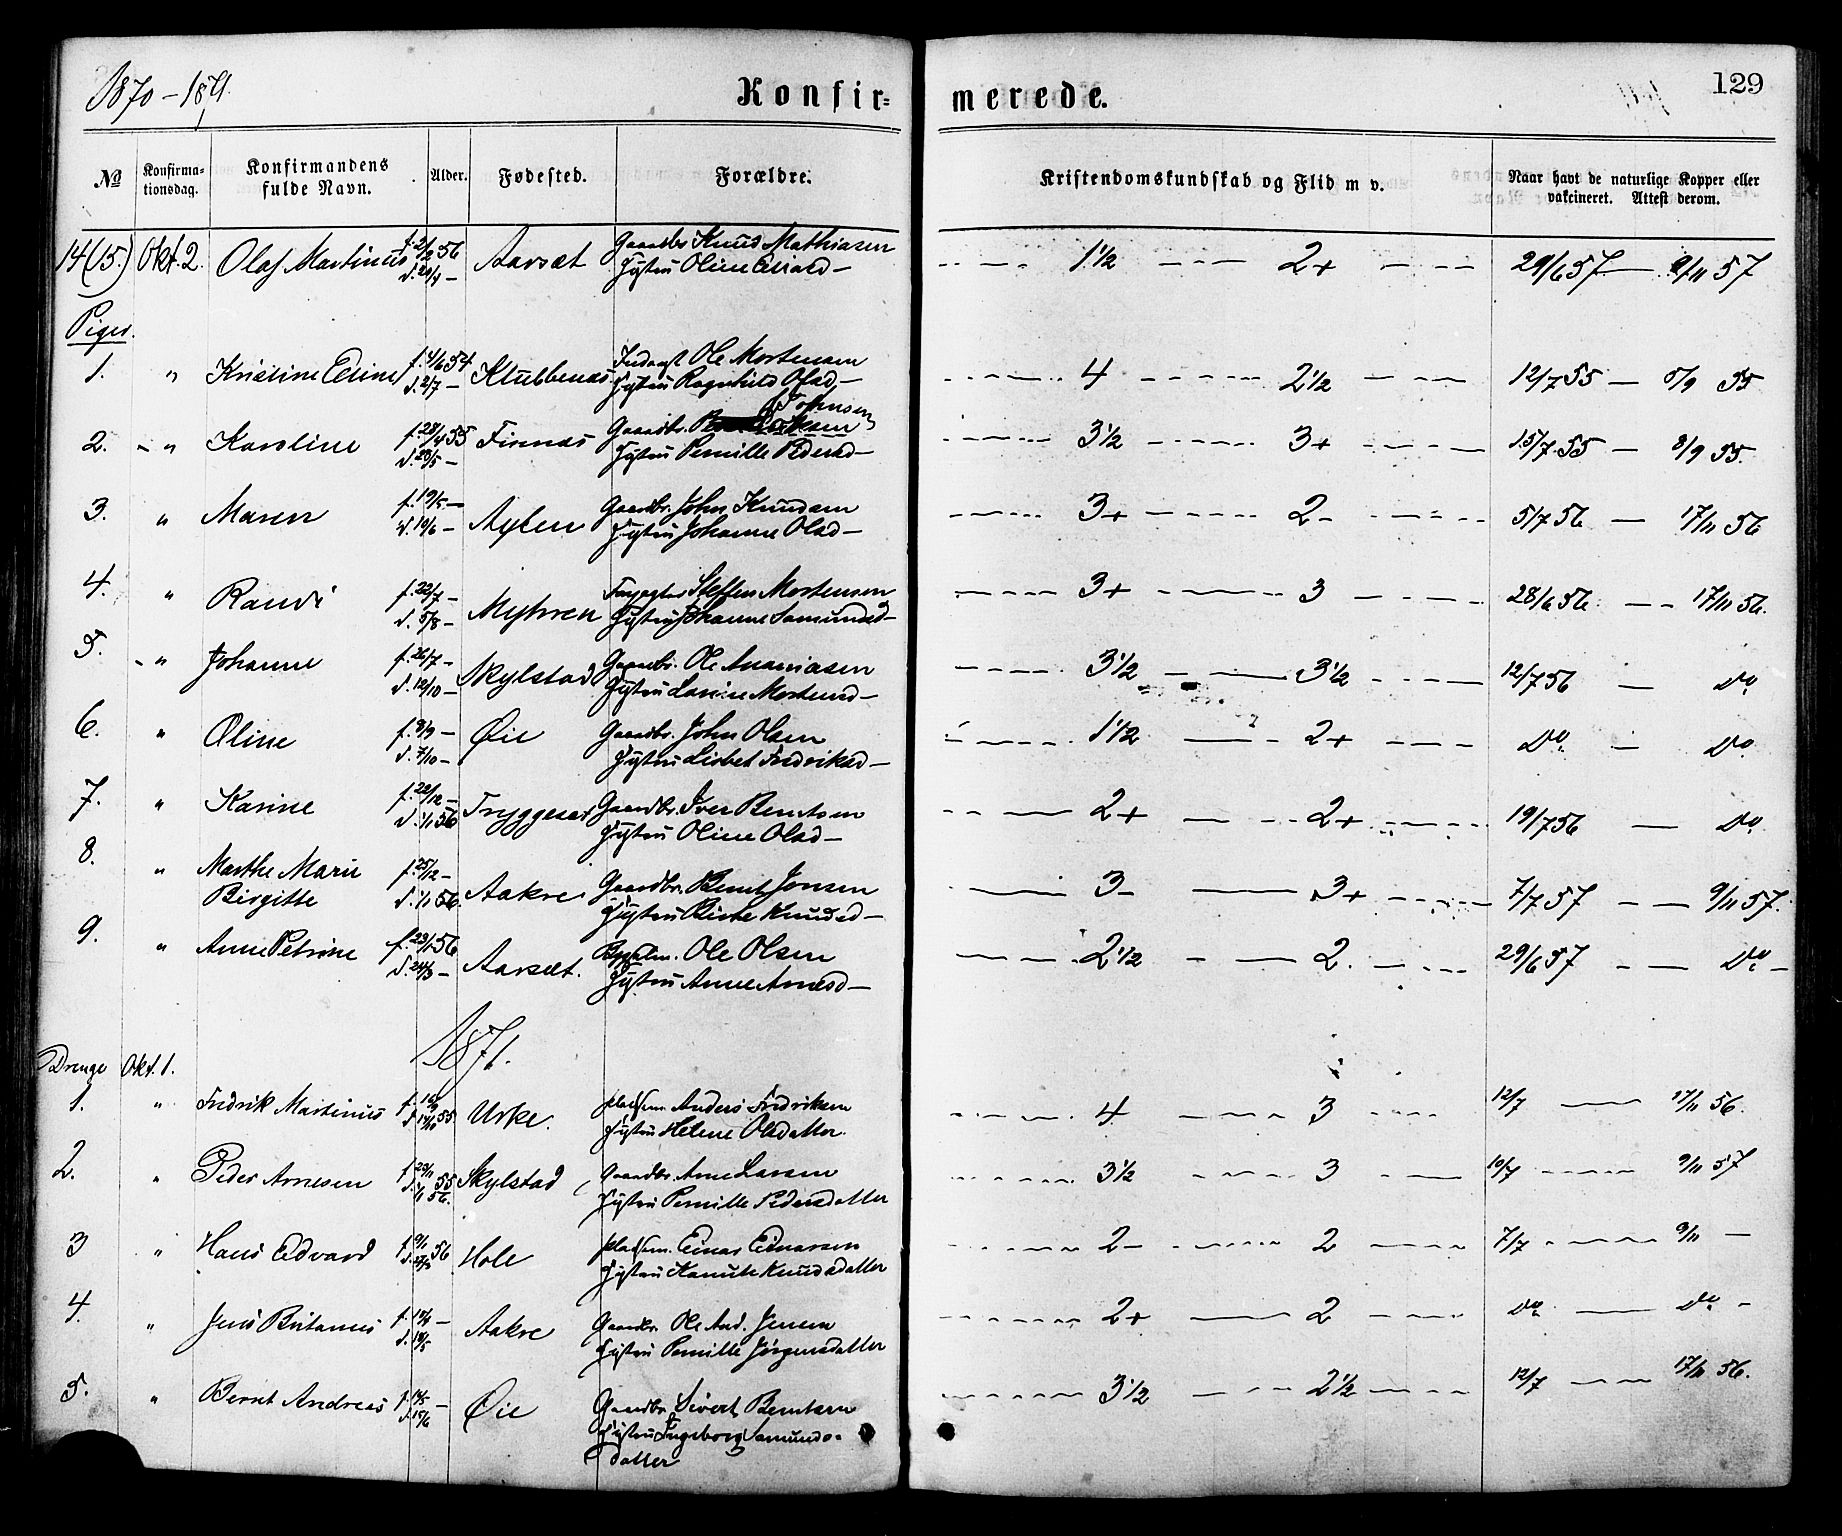 1870-1871.
Konfir=
merede.
129
No
Konfirma-
tionsdag.
Konfirmandens
fulde Navn.
Alder.
Fødested.
Forældre.
Kristendomskundskab og Flid m v.
Naar havt de naturlige Kopper eller
vakcineret. Attest derom.
14(15.) Okt. 2. Olaf Martinus f. 2/2 56 Aarsæt Gaardbr Knud Mathiasen 1½ 2+ 29/6 57 — 9/11 57
Hustru Oline —
Piger.
1. " Kristine Eline f. 4/6 54 Klubbenæs Ole Mortensen 4 2½ 12/7 55 — 5/9 55
d. 2/7 — Hustru Ragnhild Olsd —
Johnsen
2. - " Karoline f. 28/4 55 Finnæs Gaardbr. 3½ 3+ 15/7 55 — 8/9 55.
d. 28/5 — Hustru Pernille Pedersd —
3. " Maren f. 19/5 — Gaardbr. John Knudsen 3+ 2- 5/7 56 — 17/11 56
d. 19/6 — Hustru Johanne Olsd —
4. " Randi f. 22/7 — Myhren Steffen Mortensen 3+ 3 28/6 56. — 17/11 56.
d. 5/8 — Hustru Johanne Samundsd —
5. - " Johanne f. 26/7 — Skylstad Gaardbr. Ole Ananiasen 3½ 3½ 12/7 56 — do
d. 12/10 — Hustru Lavine Mortensd —
6. " Oline f. 8/9 — Øie Gaardbr. John Olsen 1½ 2+ do — do
d. 7/10 — Hustru Lisbet Fredriksd —
7. " Karine f. 22/12 — Tryggeset Gaardbr. Iver Berntsen 2+ 2+ 19/7 56 — do
d. 1/1 56 Hustru Oline Olsd —
8. " Marthe Marie f. 25/12 — Aakre Gaardbr. Bernt Jonsen 3- 3+ 7/7 57 — 9/11 57.
Birgitte d. 1/1 56. Hustru Birte Knudsd —
9. " Anne Petrine f. 29/1 56 Aarsæt. Ole Olsen 2½ 2. 29/6 57 — do —
d. 24/3 — Hustru Anne Arnesd —
1871.
Drenge Okt. 1.
1. " Fredrik Martinus Urke. pladsm. Anders Fredriksen 4 3 12/7 — 17/11 56.
55 Hustru Helene Olsdatter.
2. " Peder Arnesen f. 29/11 55 Skylstad Gaardbr. Arne Larsen 3½ 3 10/7 — 9/11 57
d. 1/1 56. Hustru Pernille Pedersdatter
3 " Hans Edvard f. 9/1 56 Hole pladsm. Einar Edvarsen 2- 2 7/7 — 9/11 —
Hustru Kanute Knudsdatter
4. " Jens Aakre Gaardbr. Ole And. Jensen 2+ 2 do — do —
Hustru Pernille Jørgensdatter
5. " Bernt Andreas f. 14/5 — Øie Gaardbr. Sivert Berntsen 3½ 2½ 12/7 — 17/11 56.
d. 15/6 Hustru Ingeborg Samunds-
datter